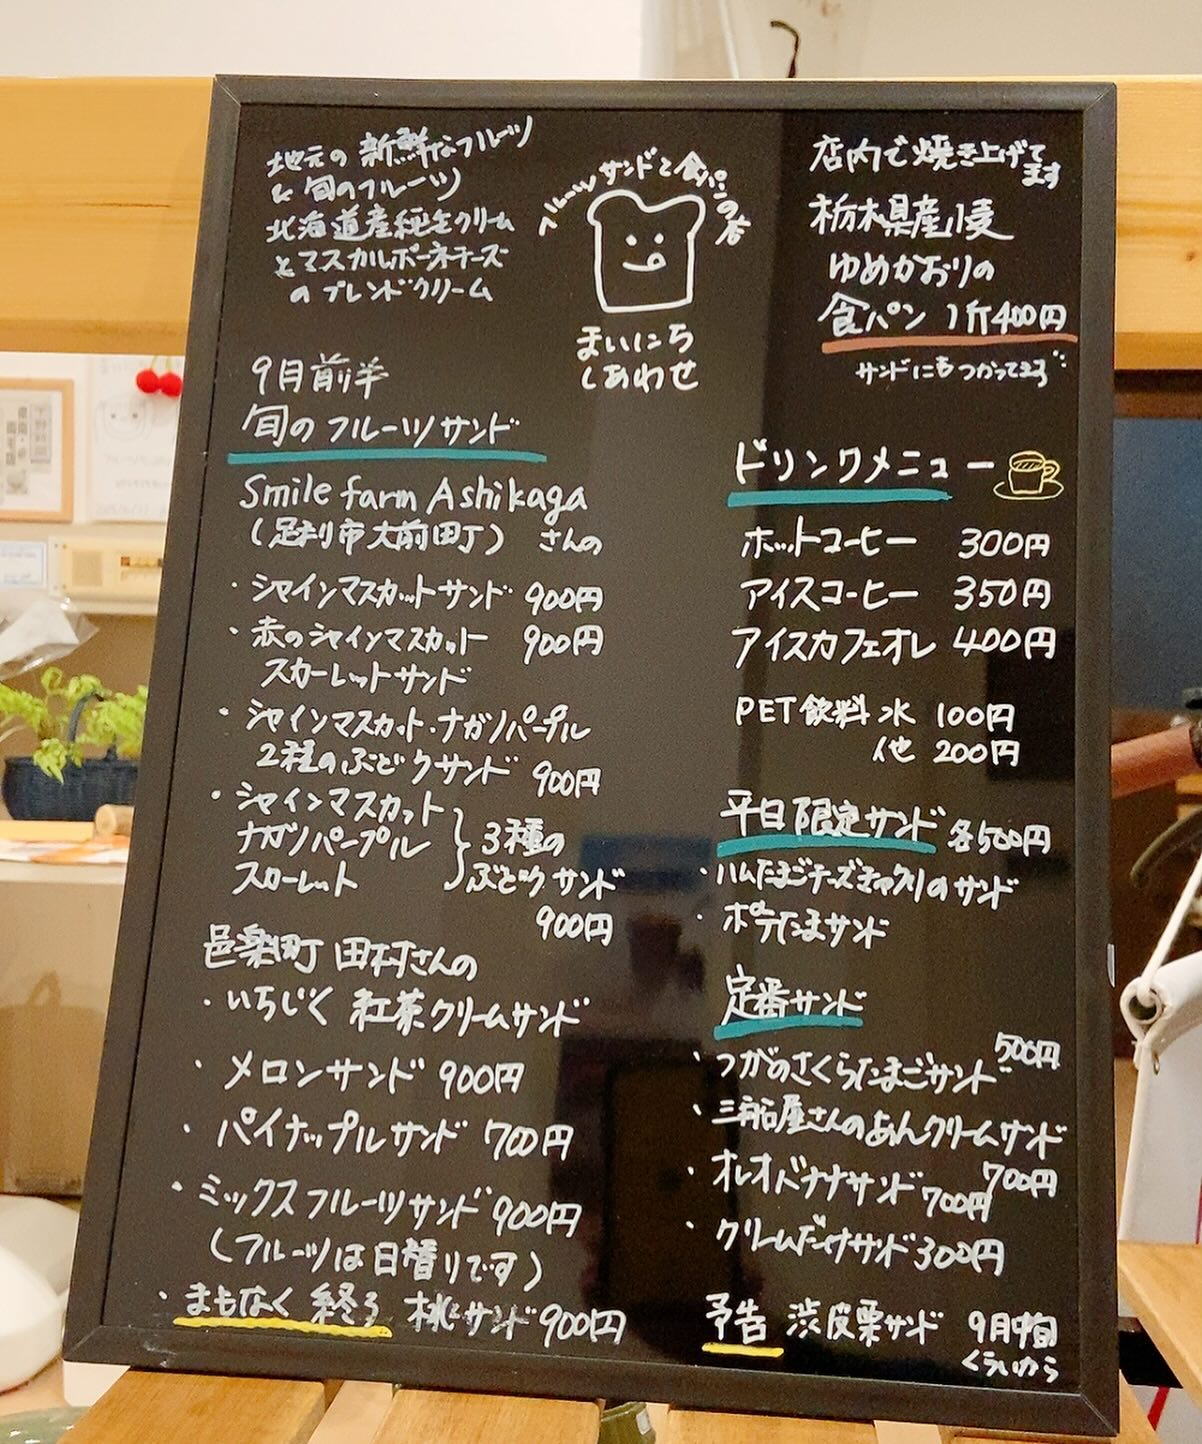 地元の新鮮なフルーツ
と旬のフルーツ
北海道産純生クリーム
とマスカルポーネチーズ
のブレンドクリーム
フルーツサンドと食パンの店
まいにち
しあわせ
店内で焼き上げて
ます
栃木県産小麦
ゆめかおりの
食パン 1斤400円
サンドにもつかってます
9月前半
旬のフルーツサンド
Smile farm Ashikaga
(足利市大前町)さんの
・シャインマスカットサンド 900円
・赤のシャインマスカット 900円
スカーレットサンド
・シャインマスカット・ナガノパープル
2種のぶどうサンド 900円
・シャインマスカット
ナガノパープル
スカーレット
3種の
ぶどうサンド
900円
邑楽町 田村さんの
・いちじく 紅茶クリームサンド
・メロンサンド 900円
・パイナップルサンド 700円
・ミックスフルーツサンド 900円
(フルーツは日替りです)
・まもなく終る 桃サンド 900円
ドリンクメニュー
ホットコーヒー 300円
アイスコーヒー 350円
アイスカフェオレ 400円
PET飲料 水 100円
他 200円
平日限定サンド 各500円
・ハムたまごチーズきゅうりのサンド
・ポテたまサンド
定番サンド
・つがのさくらたまごサンド 500円
・三舟石屋さんのあんクリームサンド
700円
・オレオバナナサンド 700円
・クリームだけサンド 300円
予告 渋皮栗サンド 9月中旬
くらいから